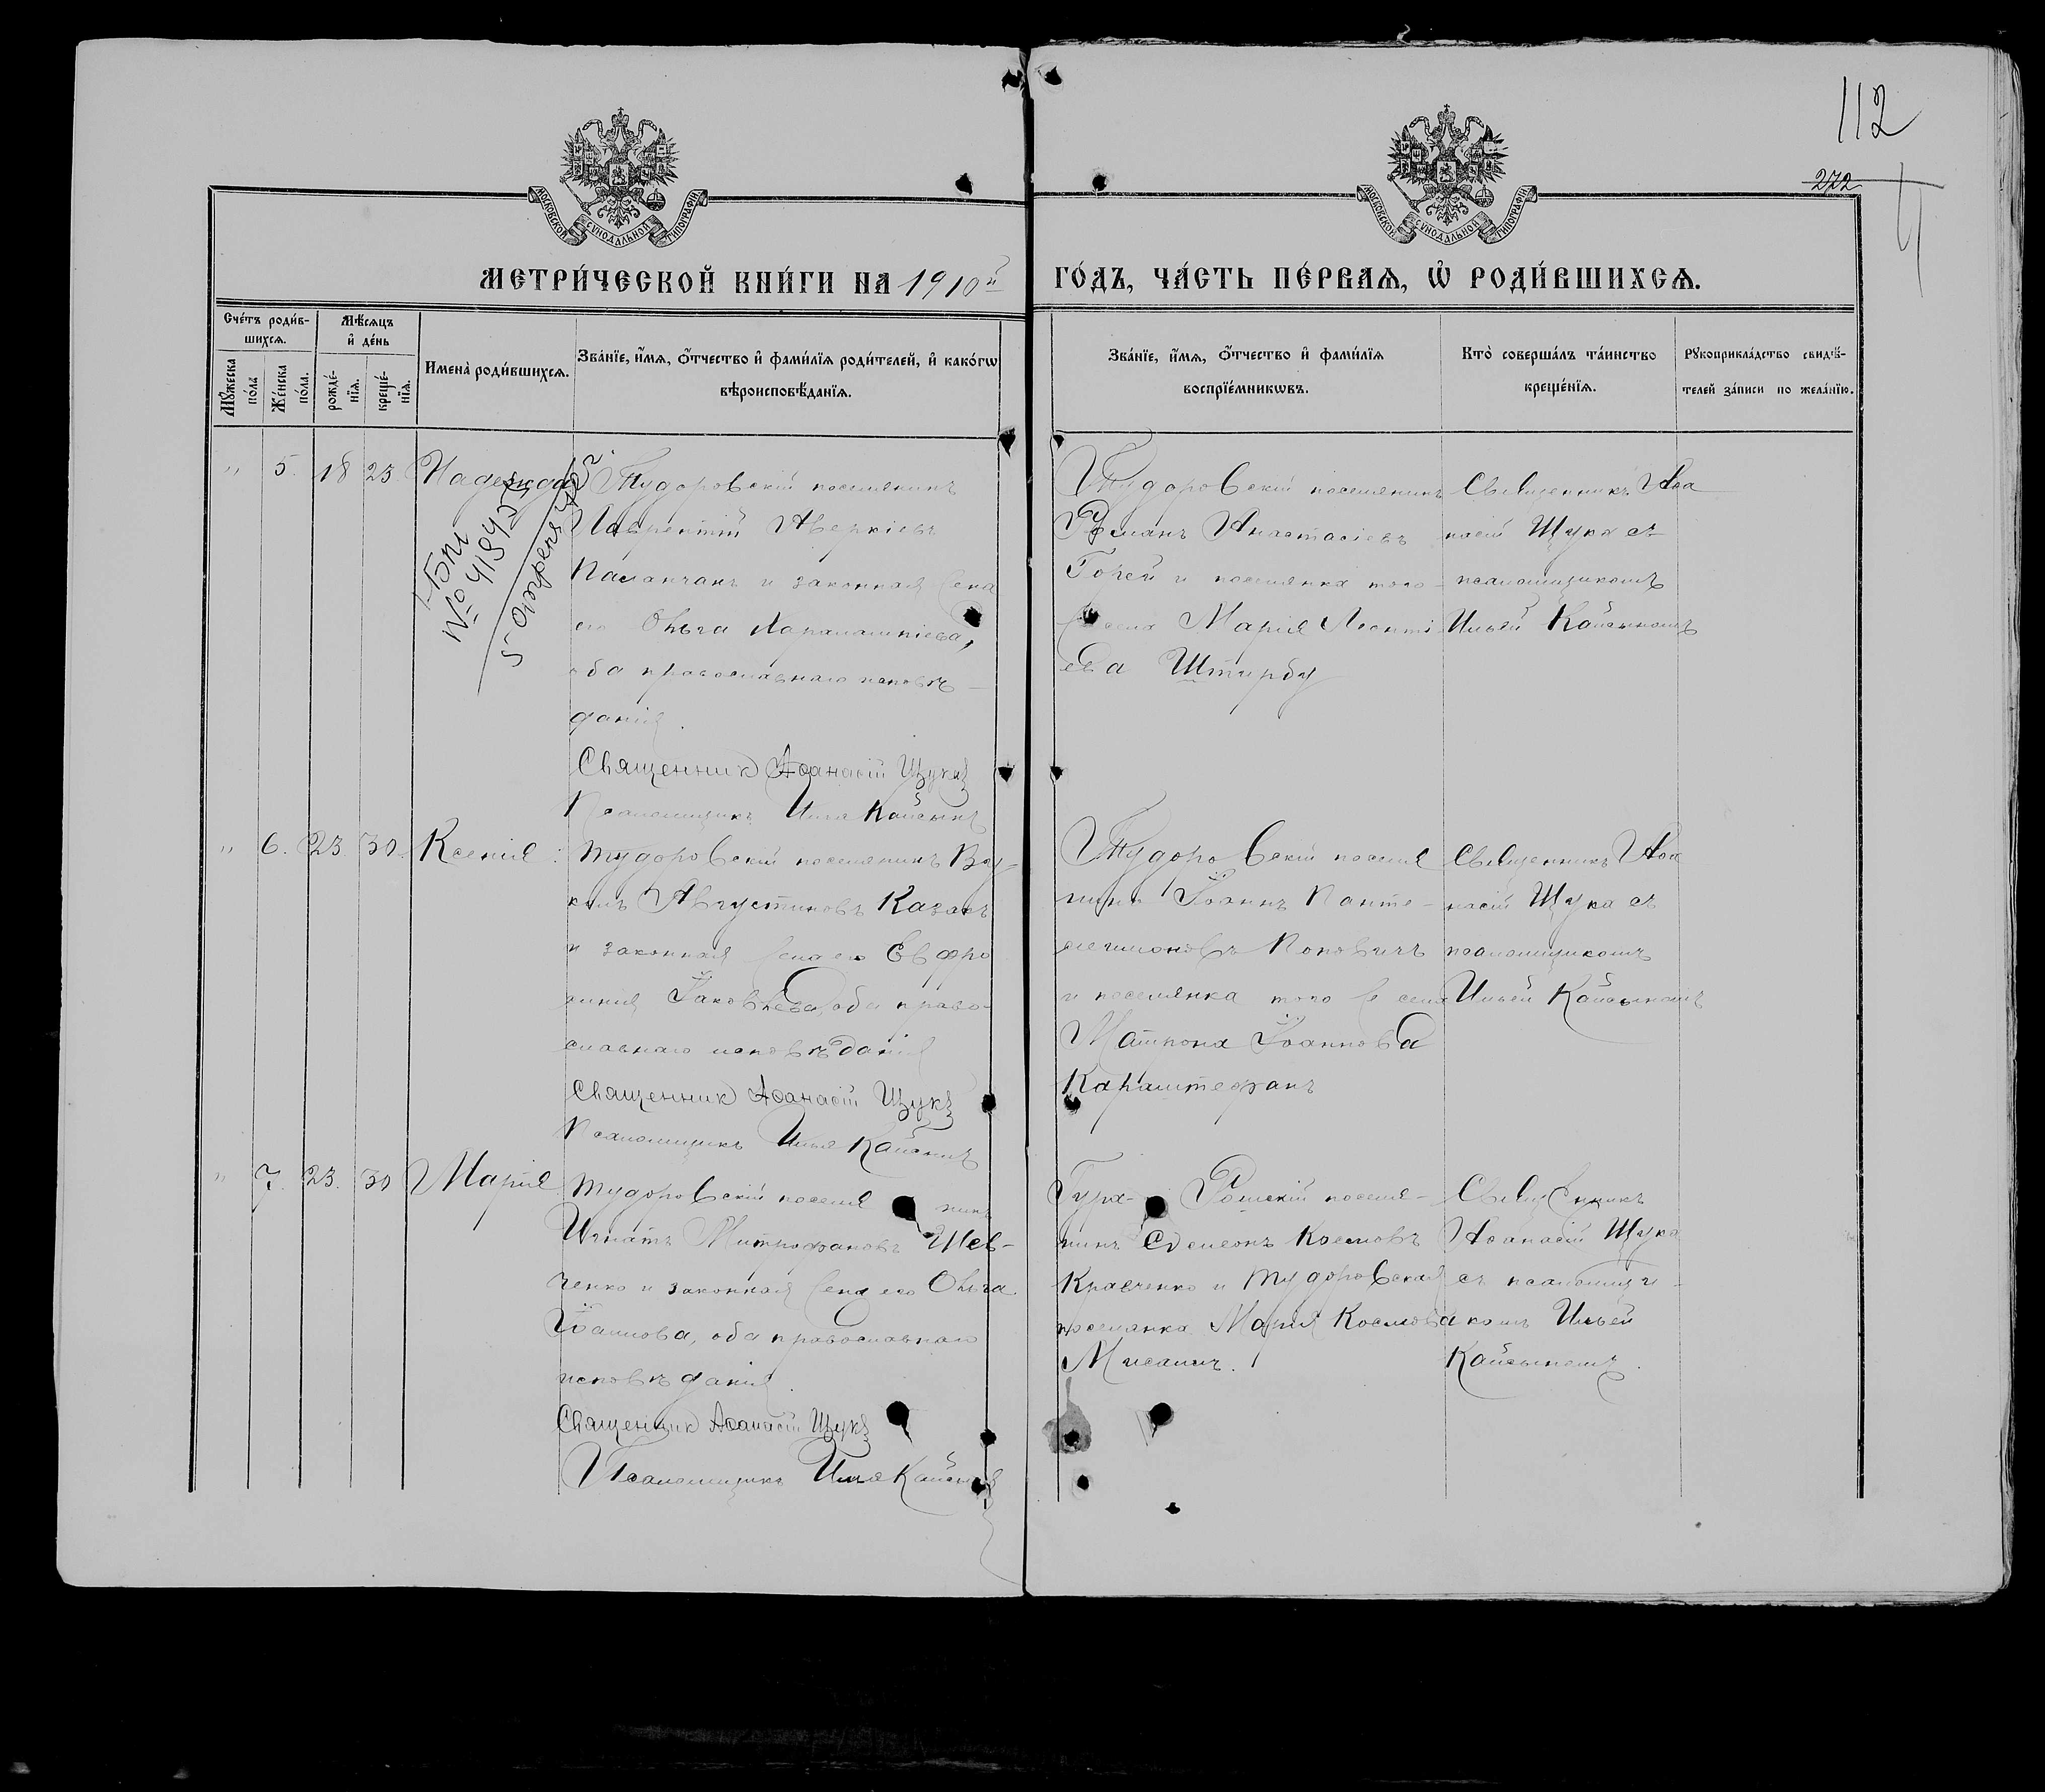 112
272
МОСКОВСКОЙ СѴНОДАЛЬНОЙ ТИПОГРАФІИ
МОСКОВСКОЙ СѴНОДАЛЬНОЙ ТИПОГРАФІИ
МЕТРИ́ЧЕСКОЙ КНИ́ГИ НА 1910й
ГО́ДЪ, ЧА́СТЬ ПЕ́РВАѦ, Ѡ҆ РОДИ́ВШИХСѦ.
Сче́тъ роди́в-
шихсѧ.
Мѣ́сѧцъ
и҆ де́нь
Мꙋ́жеска
по́ла
Же́нска
по́ла.
рожде́-
нїѧ.
креще́-
нїѧ.
Имена̀ роди́вшихсѧ.
Зва́нїе, и҆́мѧ, ѻ҆́тчество и҆ фами́лїѧ роди́телей, и҆ како́гѡ
вѣроисповѣ́данїѧ.
Зва́нїе, и҆́мѧ, ѻ҆́тчество и҆ фами́лїѧ
воспрїе́мникѡвъ.
Кто̀ соверша́лъ та́инство
креще́нїѧ.
Рꙋкоприкла́дство свидѣ́-
телей за́писи по жела́нїю.
" 5. 18 23. Надежда
№ 41847
5
Тудоровскій поселянинъ
Лаврентій Аверкіевъ
Паланчанъ и законная жена
его Ольга Харалампіева,
оба православнаго исповѣ-
данія.
Священник Аѳанасій Щука
Псаломщикъ Илья Кайсынъ
Тудоровскій поселянинъ
Романъ Анастасіевъ
Горей и поселянка того-
же села Марія Леонті-
ева Штирбу
Священникъ Аѳа
насій Щука съ
псаломщикомъ
Ильей Кайсыномъ
" 6. 23. 30. Ксенія.
Тудоровскій поселянинъ Ву-
колъ Августиновъ Казакъ
и законная жена его Евфро
синія Іаковлева, оба право-
славнаго исповѣданія
Священник Аѳанасій Щука
Псаломщикъ Илья Кайсынъ
Тудоровскій поселя
нинъ Іоаннъ Панте-
леимоновъ Поповичъ
и поселянка того же села
Матрона Іоаннова
Караштефанъ
Священникъ Аѳа
насій Щука съ
псаломщикомъ
Ильей Кайсыномъ
" 7. 23. 30 Марія
Тудоровскій поселя нинъ
Игнатъ Митрофановъ Шев-
ченко и законная жена его Ольга
Іоаннова, оба православнаго
исповѣданія.
Священник Аѳанасій Щука
Псаломщикъ Илья Кайсынъ
Гура- Рошскій поселя-
нинъ Симеонъ Космовъ
Кравченко и Тудоровская
поселянка Марія Космова
Священникъ
Аѳанасій Щука
съ псаломщи-
комъ Ильей
Кайсыномъ.